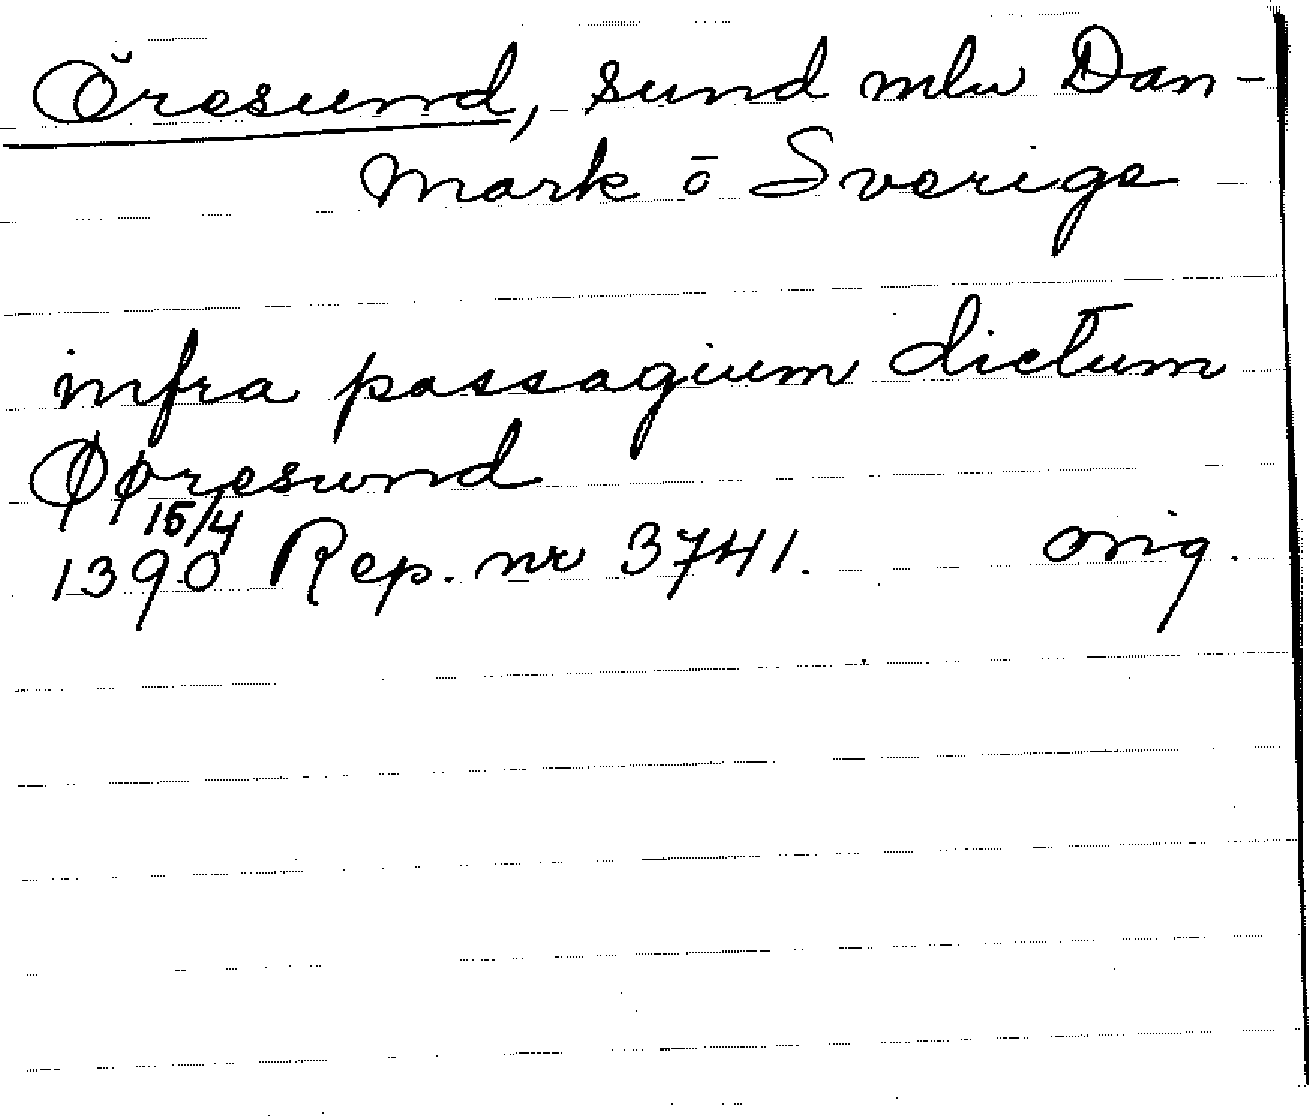 Öresund, sund mlu Dan-
mark ō Sverige
infra passagium dictum
Øøresund
15/4
1390 Rep. nr 3741. orig.